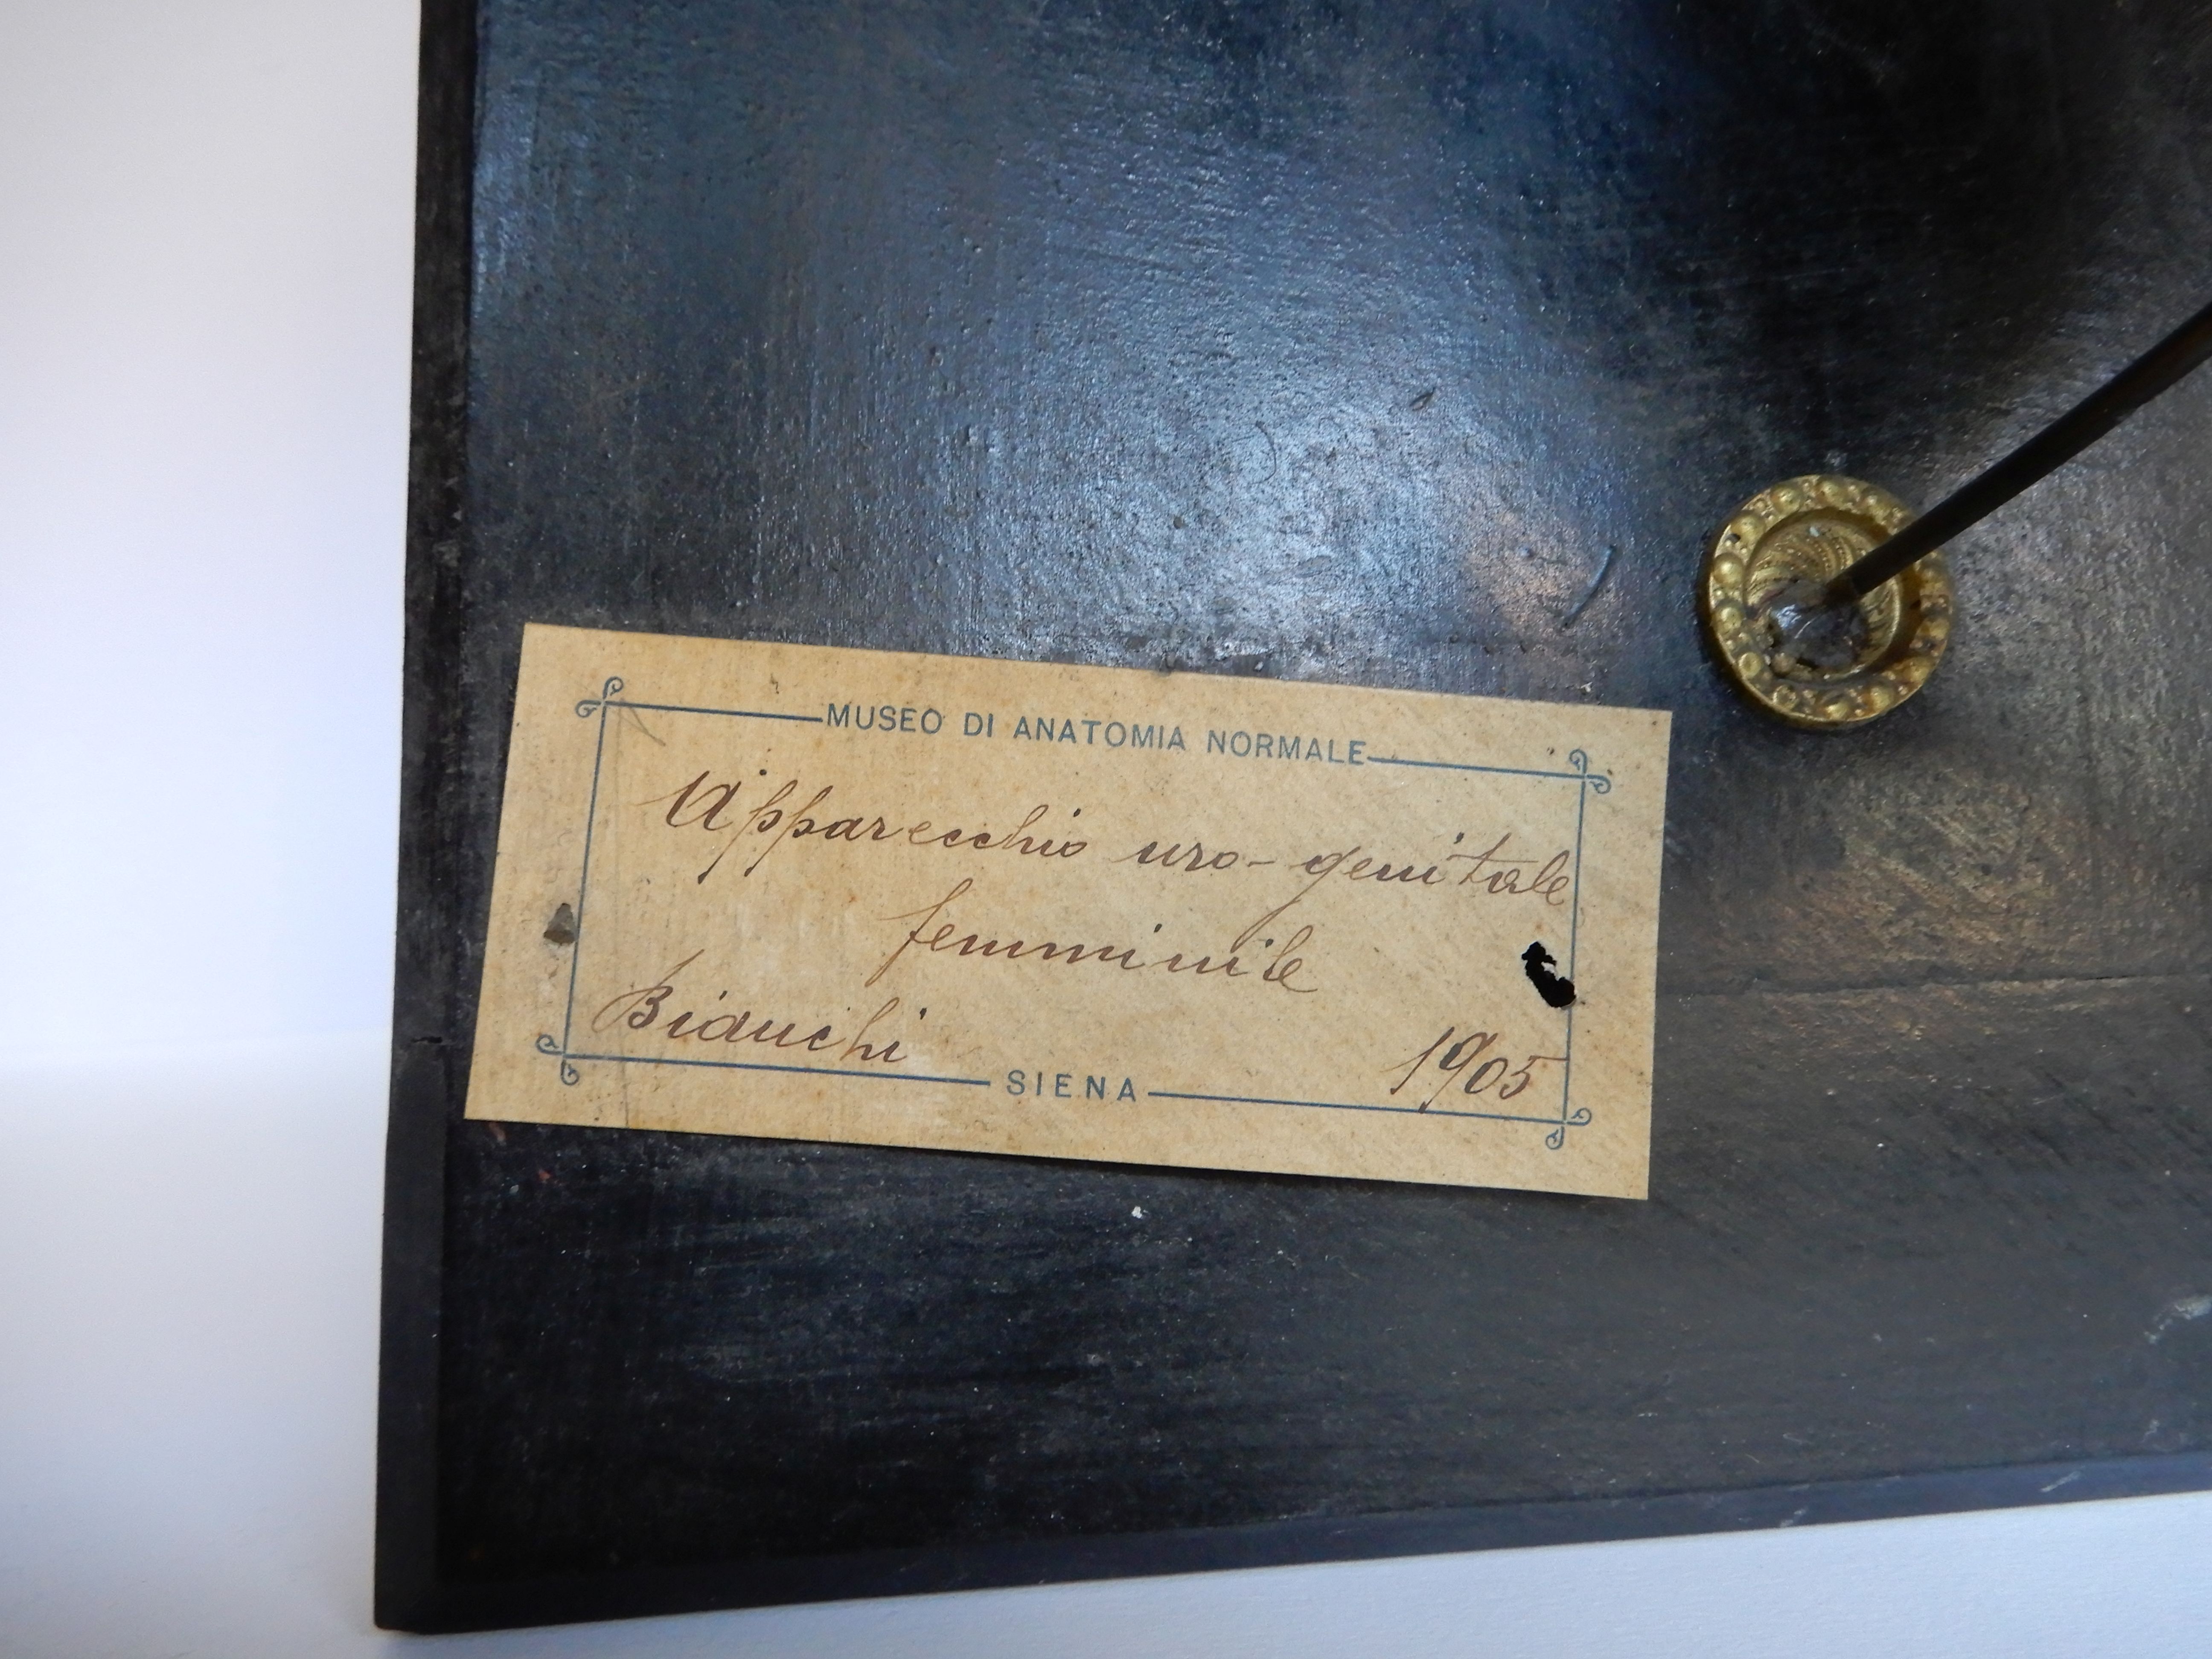 MUSEO DI ANATOMIA NORMALE
Apparecchio uro-genitale
femminile
Bianchi 1905
SIENA